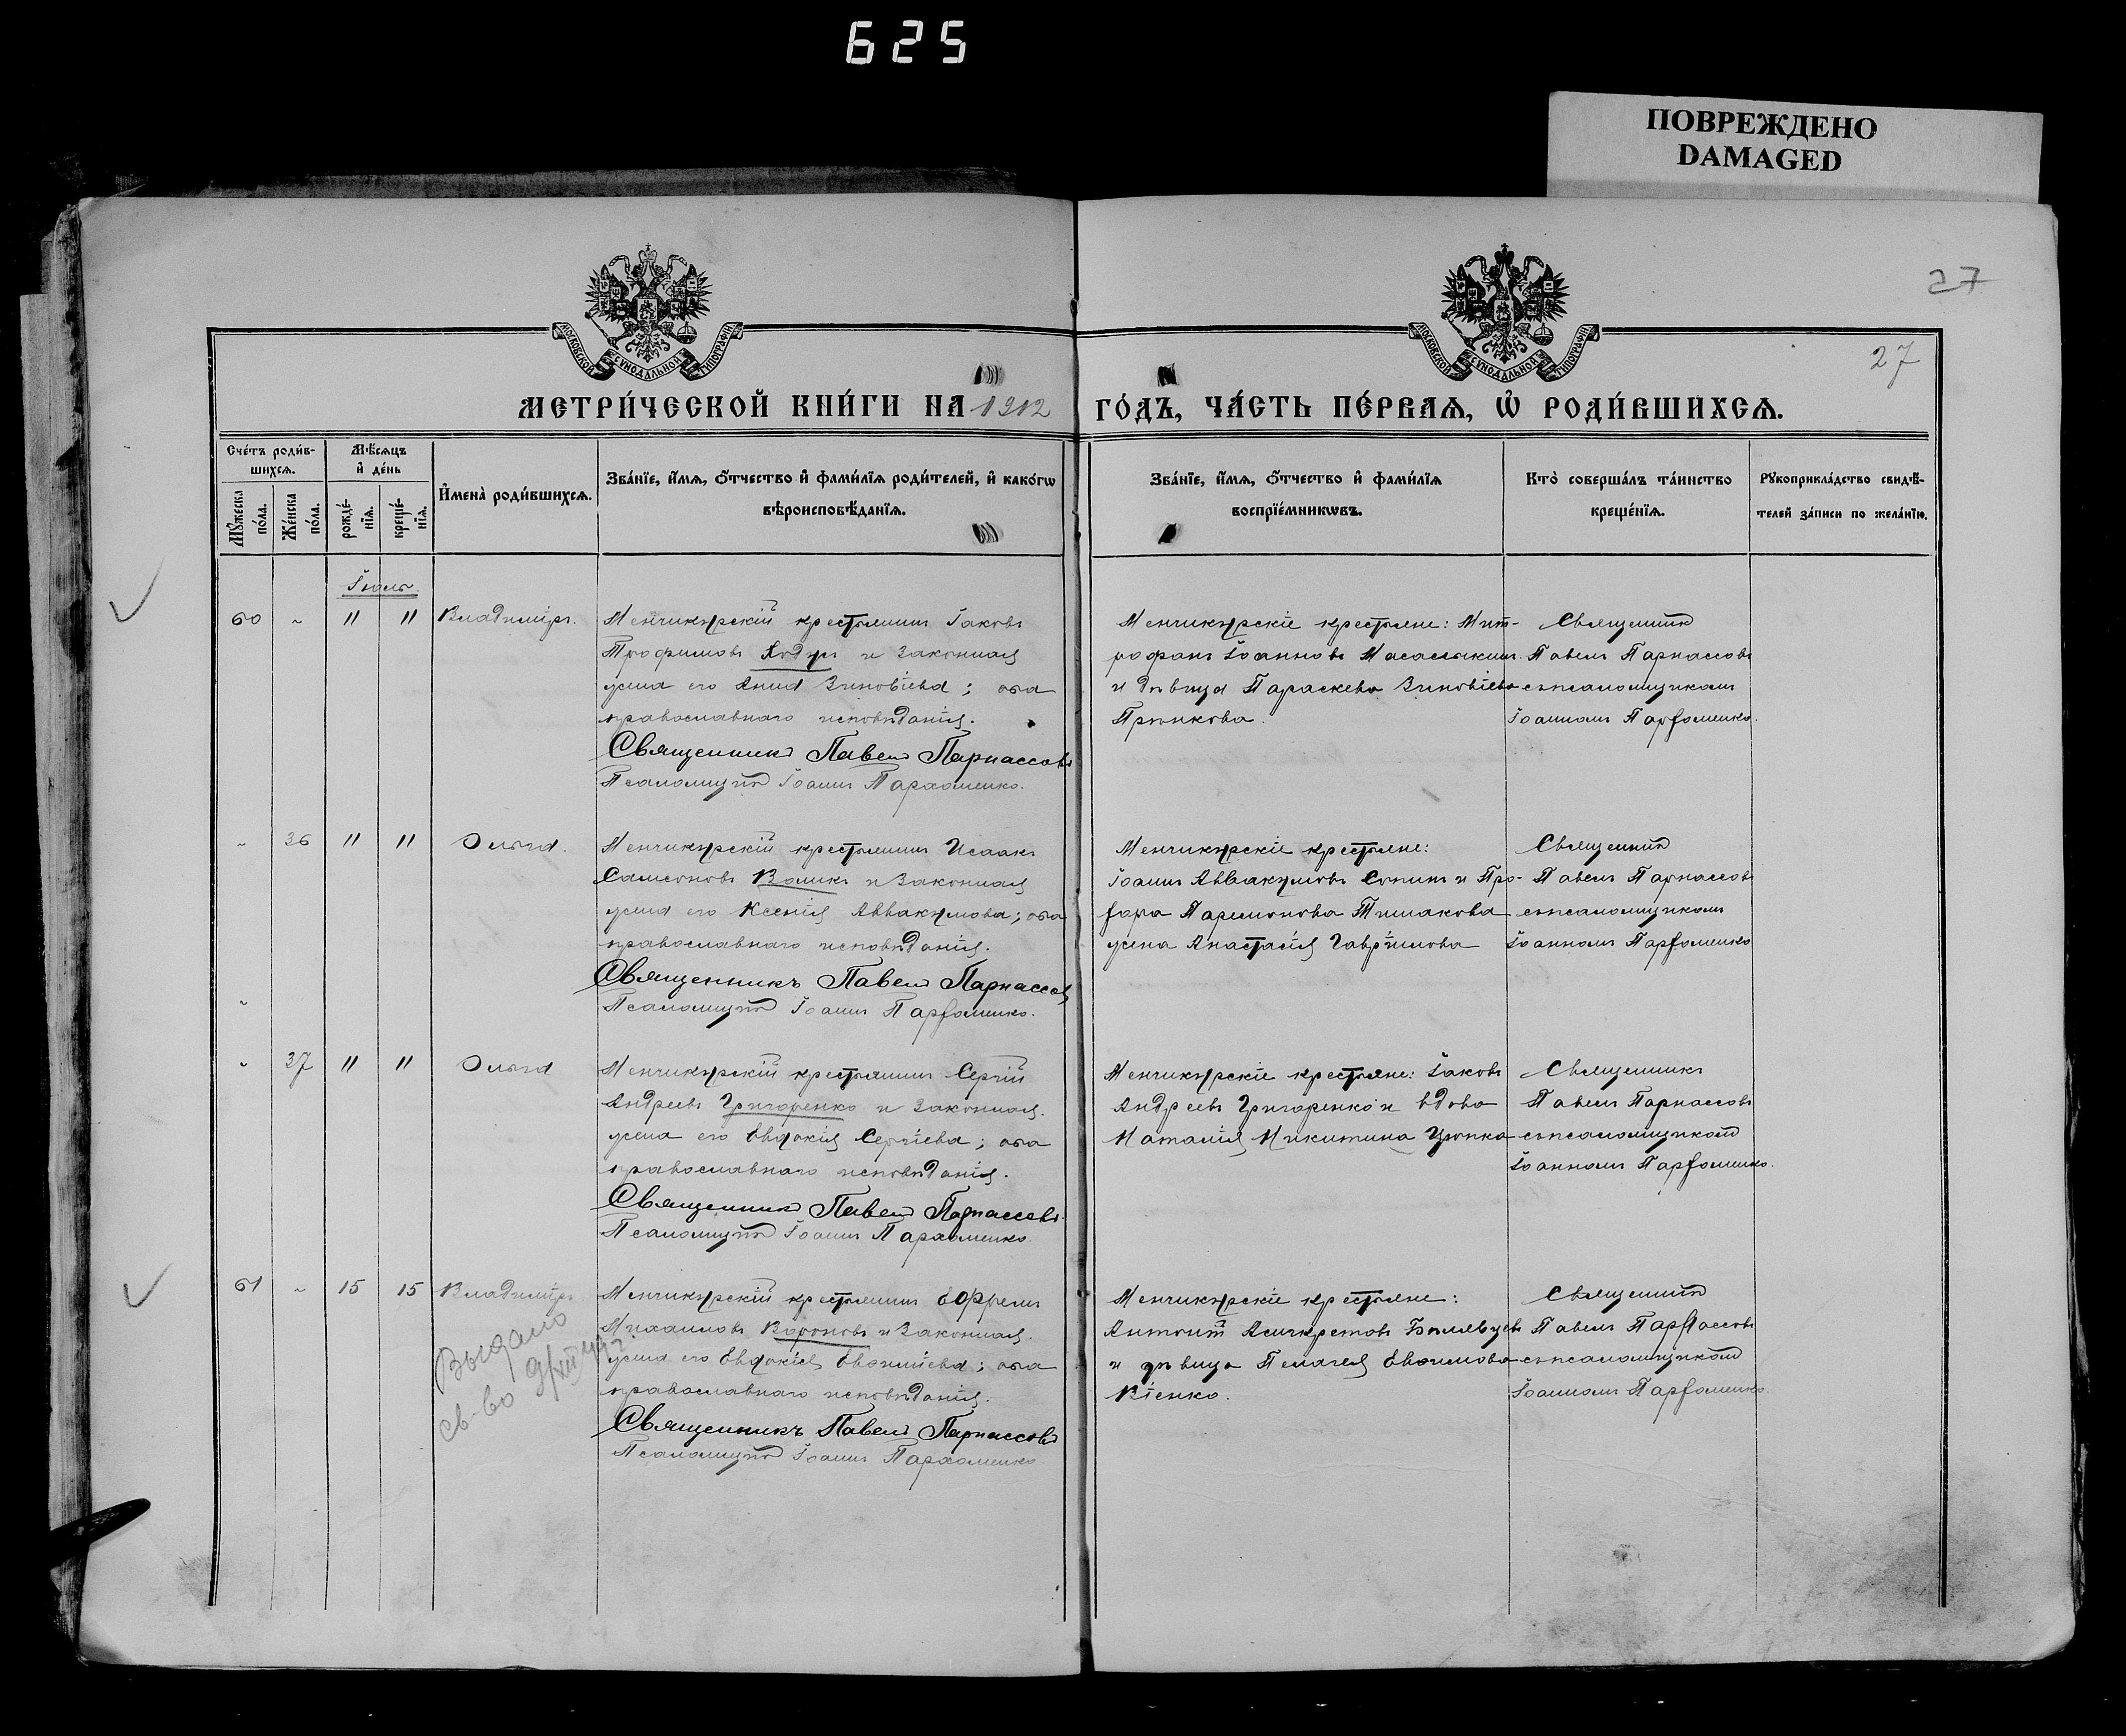 625
ПОВРЕЖДЕНО
DAMAGED
27
27
МОСКОВСКОЙ СѴНОДАЛЬНОЙ ТИПОГРАФІИ
МОСКОВСКОЙ СѴНОДАЛЬНОЙ ТИПОГРАФІИ
МЕТРИ́ЧЕСКОЙ КНИ́ГИ НА 1912 ГО́ДЪ, ЧА́СТЬ ПЕ́РВАѦ, Ѡ҆ РОДИ́ВШИХСѦ.
Сче́тъ роди́в-
шихсѧ.
Мѣ́сѧцъ
и҆ де́нь
Мꙋ́жеска по́ла.
Же́нска по́ла.
рожде́-
нїѧ.
креще́-
нїѧ.
И҆мена̀ роди́вшихсѧ.
Зва́нїе, и҆́мѧ, ѻ҆́тчество и҆ фами́лїѧ роди́телей, и҆ како́гѡ
вѣроисповѣ́данїѧ.
Зва́нїе, и҆́мѧ, ѻ҆́тчество и҆ фами́лїѧ
воспрїе́мникѡвъ.
Кто̀ соверша́лъ та́инство
креще́нїѧ.
Рꙋкоприкла́дство свидѣ́-
телей за́писи по жела́нїю.
Іюль
60 " 11 11 Владиміръ.
Менчикурскій крестьянинъ Іаковъ
Трофимовъ Ходусъ и законная
жена его Анна Зиновіева; оба
православнаго исповѣданія.
Священникъ Павелъ Парнассовъ
Псаломщикъ Іоаннъ Пархоменко.
Менчикурскіе крестьяне: Мит-
рофанъ Іоанновъ
и дѣвица Параскева Зиновіева
Священникъ
Павелъ Парнассовъ
съ псаломщикомъ
Іоанномъ Парфоменко.
" 36 11 11 Ольга.
Менчикурскій крестьянинъ Исаакъ
Самсоновъ Воликъ и законная
жена его Ксенія Аввакумова; оба
православнаго исповѣданія.
Священникъ Павелъ Парнассовъ
Псаломщикъ Іоаннъ Парфоменко.
Менчикурскіе крестьяне:
Іоаннъ Аввакумовъ и Про-
фора Парамонова Тишакова
жена Анастасія Гавріилова
Священникъ
Павелъ Парнассовъ
съ псаломщикомъ
Іоанномъ Парфоменко
" 37 11 11 Ольга
Менчикурскій крестьянинъ Сергій
Андреевъ Григоренко и законная.
жена его Евдокія Сергіева; оба
православнаго исповѣданія.
Священникъ Павелъ Парнассовъ
Псаломщикъ Іоаннъ Пархоменко
Менчикурскіе крестьяне: Іаковъ
Андреевъ Григоренко и вдова
Наталія Никитина Цюпка
Священникъ
Павелъ Парнассовъ
съ псаломщикомъ
Іоанномъ Парфоменко.
61 " 15 15 Владиміръ
Выдано
св-во
Менчикурскій крестьянинъ Ефремъ
Михаиловъ Вороновъ и законная.
жена его Евдокія Евфиміева; оба
православнаго исповѣданія.
Священникъ Павелъ Парнассовъ
Псаломщикъ Іоаннъ Пархоменко
Менчикурскіе крестьяне:
и дѣвица Пелагея Евфимова
Священникъ
Павелъ Парнассовъ
съ псаломщикомъ
Іоанномъ Парфоменко